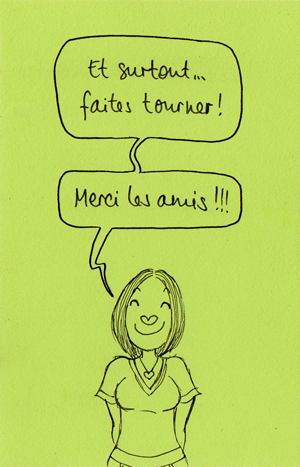 Et surtout...
faites tourner !
Merci les amis !!!